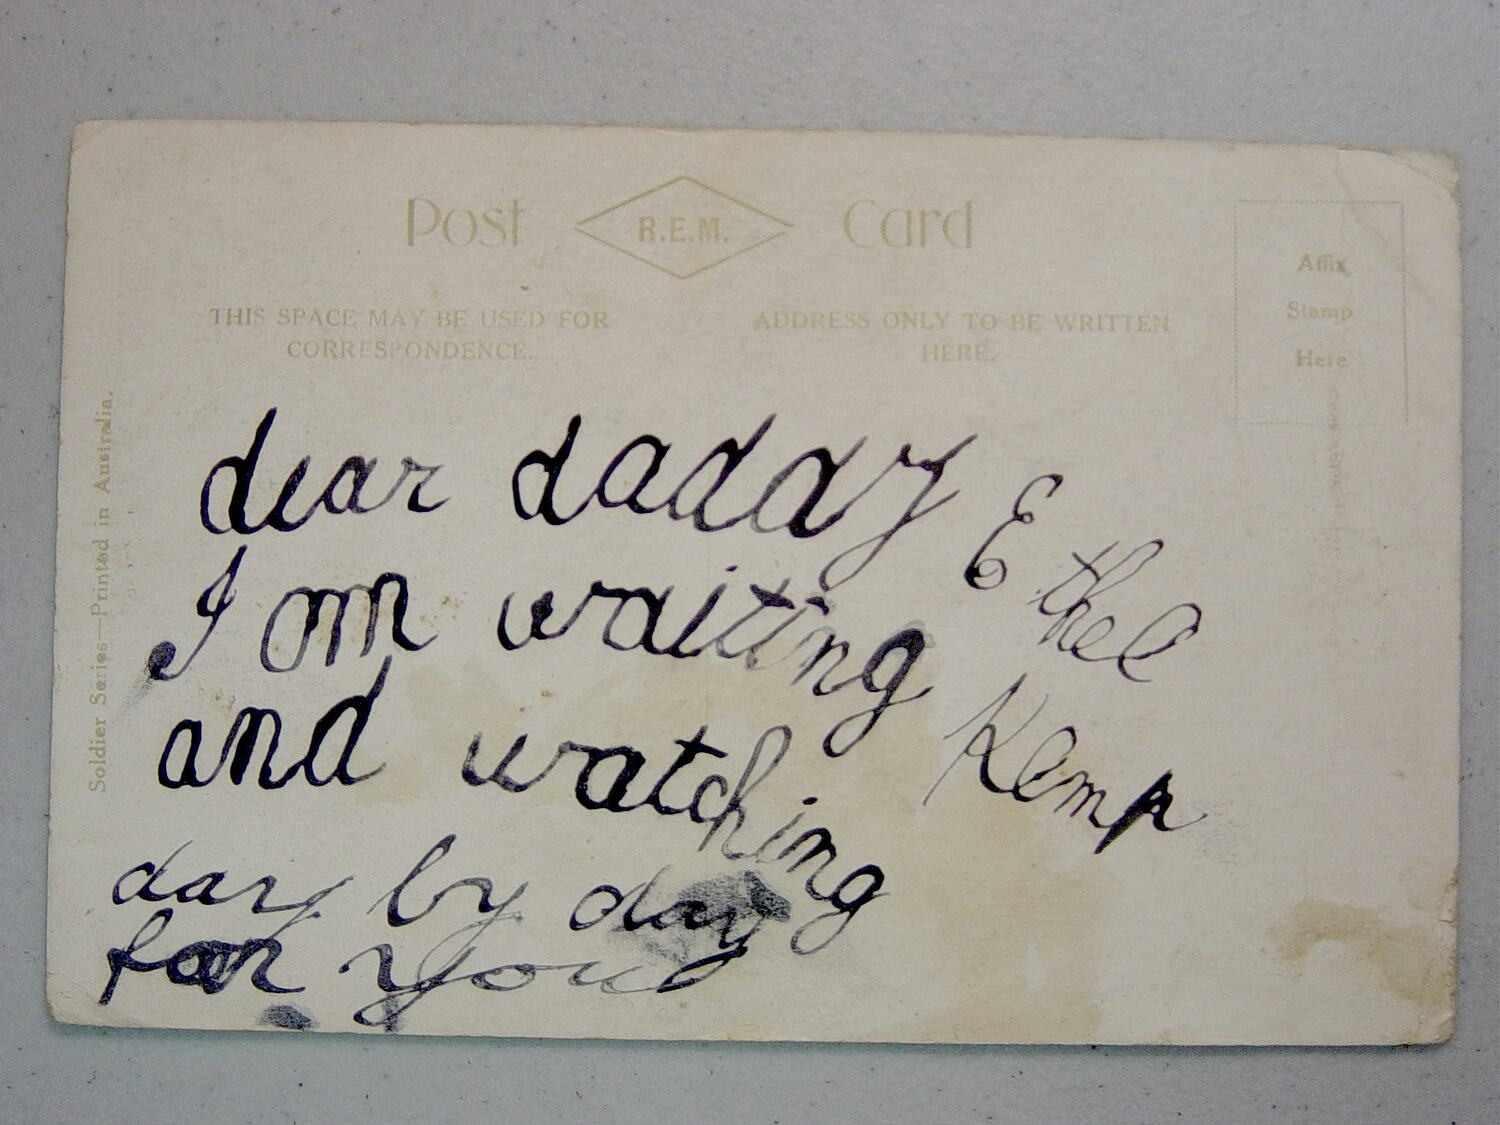 Post R.E.M. Card
THIS SPACE MAY BE USED FOR
CORRESPONDENCE.
ADDRESS ONLY TO BE WRITTEN
HERE.
Affix
Stamp
Here
Soldier Series—Printed in Australia.
dear daddy
I am waiting
and watching
day by day
for you
Ethel
Kemp